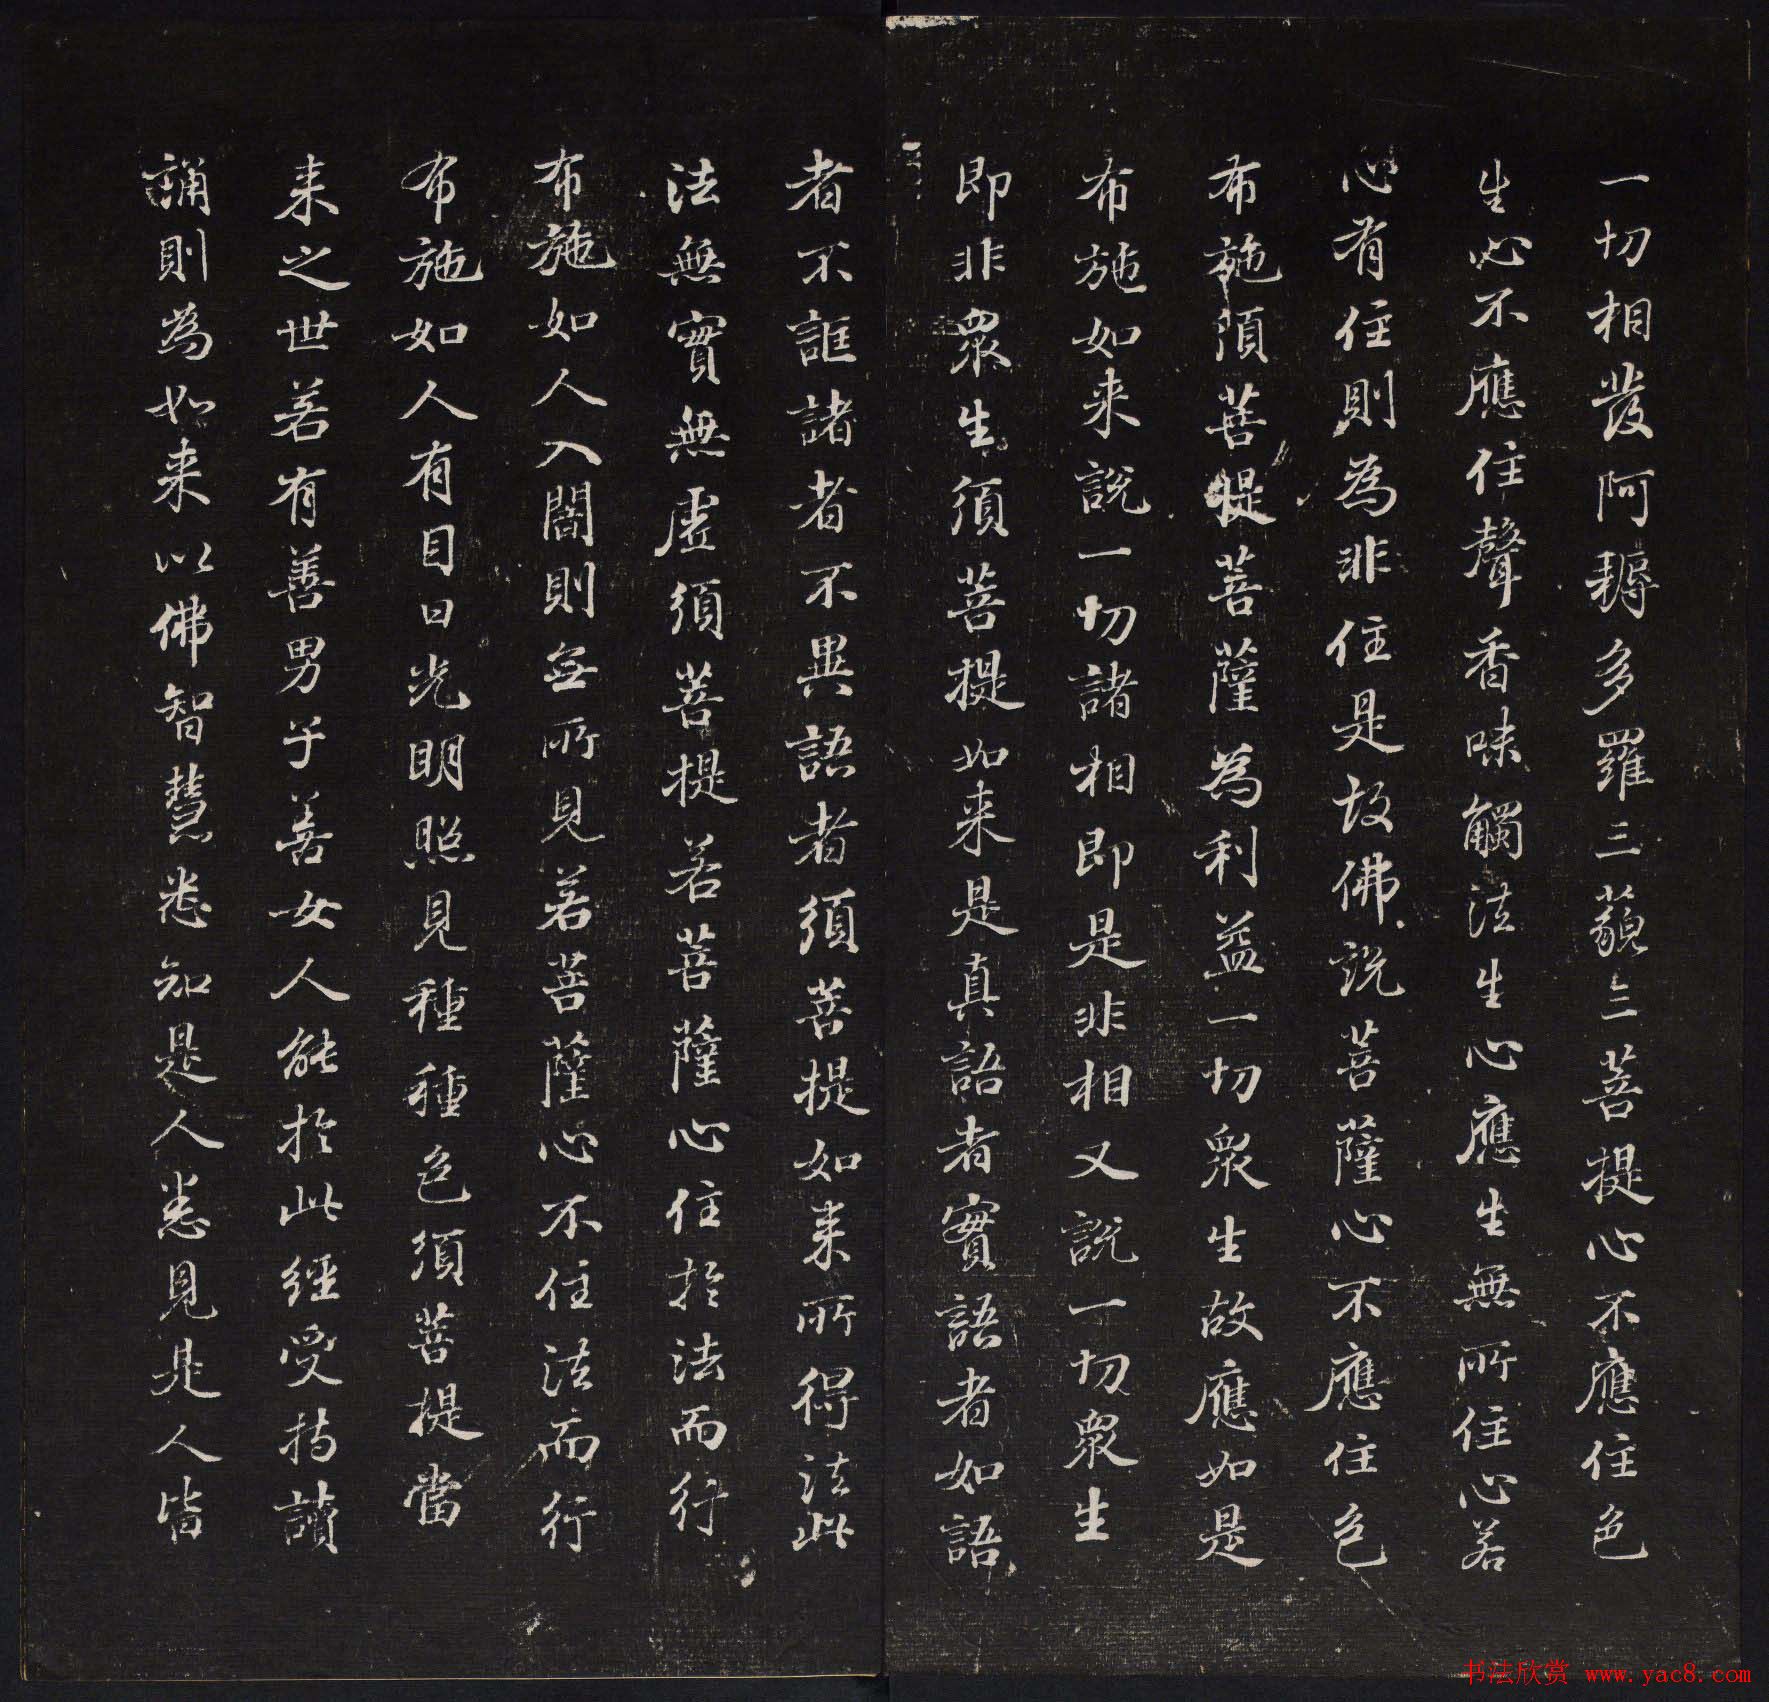 一切相發阿耨多羅三藐三菩提心不應住色
生心不應住聲香味觸法生心應生無所住心若
心有住則為非住是故佛說菩薩心不應住色
布施須菩提菩薩為利益一切眾生故應如是
布施如来說一切諸相即是非相又說一切眾生
即非眾生須菩提如来是真語者實語者如語
者不誑諸者不異語者須菩提如来所得法此
法無實無虛須菩提若菩薩心住於法而行
布施如人入闇則无所見若菩薩心不住法而行
布施如人有目日光明照見種種色須菩提當
来之世若有善男子善女人能於此經受持讀
誦則為如来以佛智慧悉知是人悉見是人皆
书法欣赏 www.yac8.com